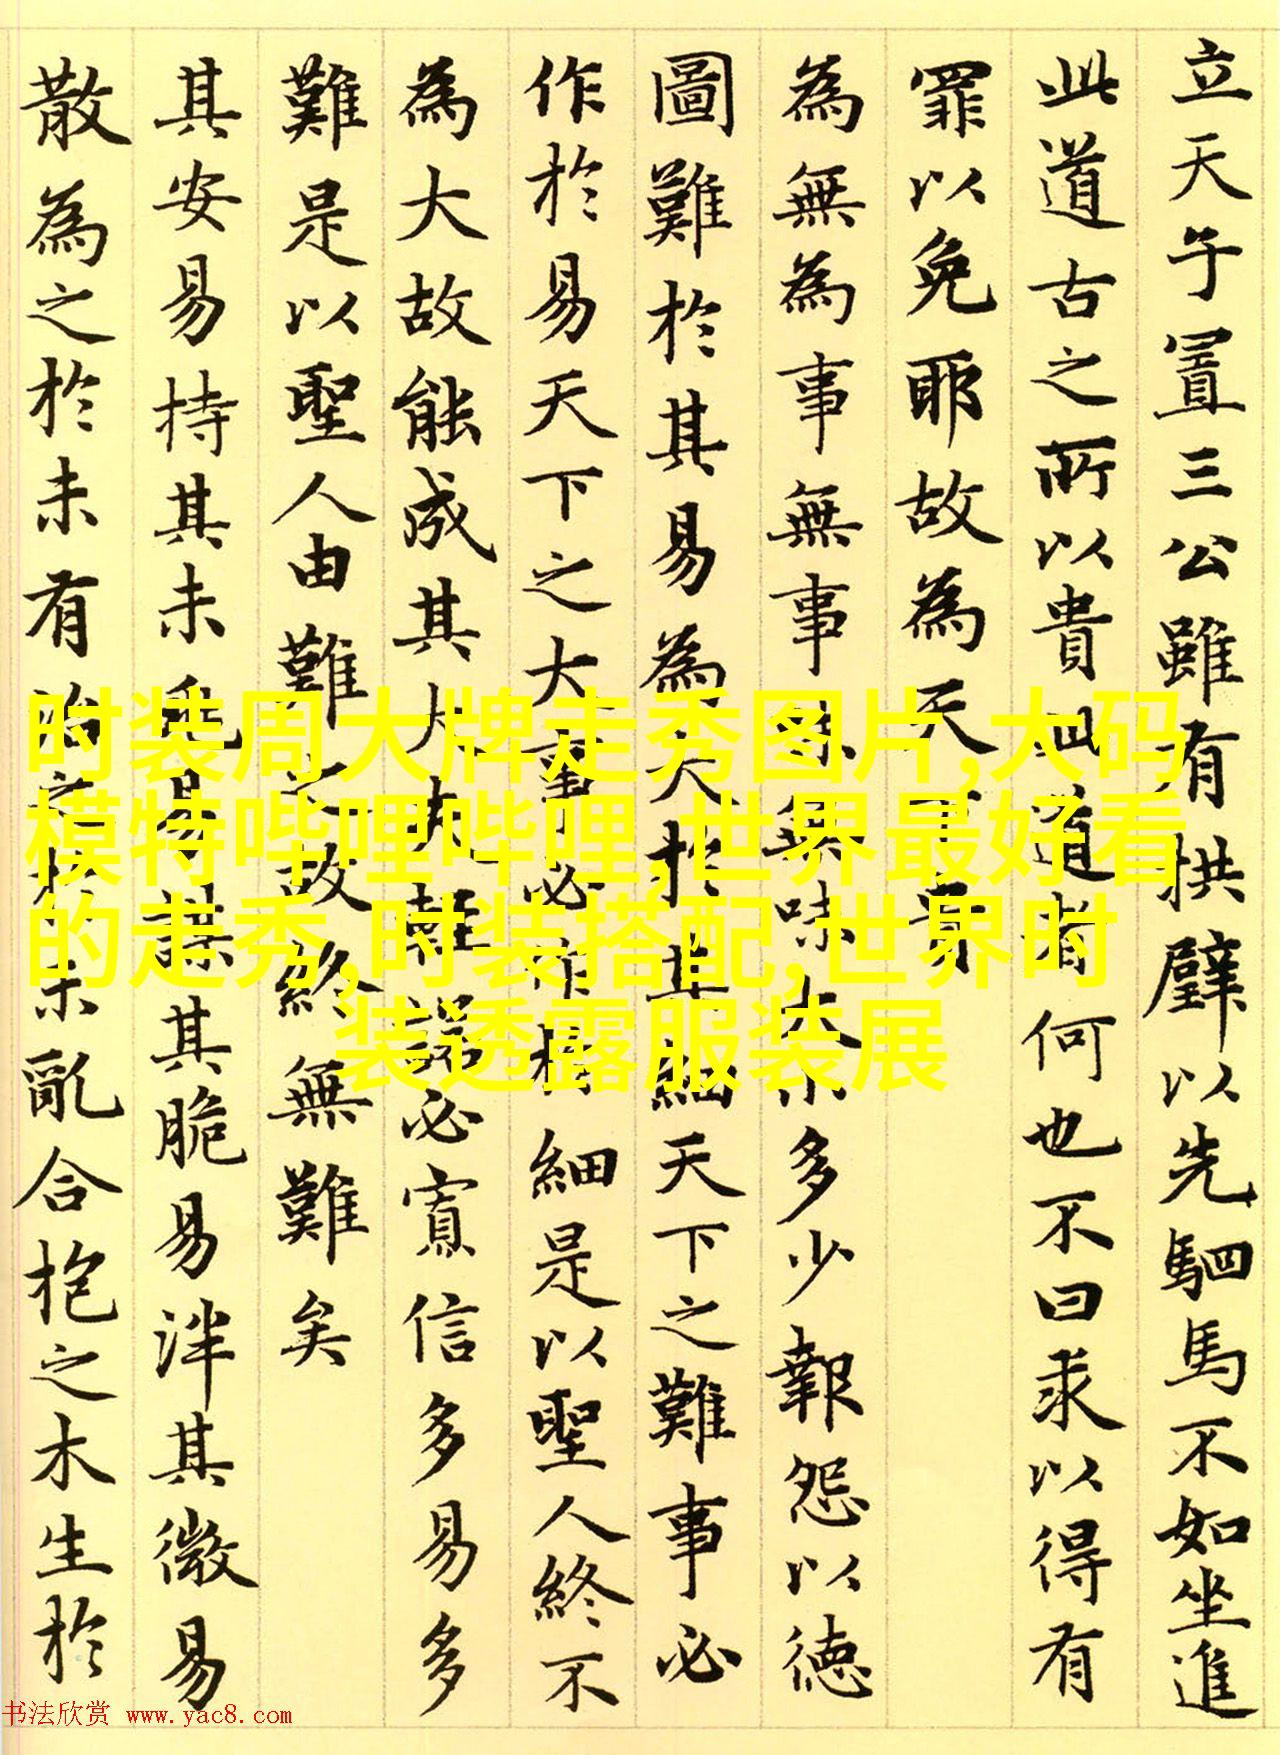 立天子置三公雖有拱璧以先駟馬不如坐進
此道古之所以貴此道者何也不曰求以得有
罪以免耶故為天下貴
為無為事無事味無味大小多少報怨以德
圖難於其易為大於其細天下之難事必
作於易天下之大事必作於細是以聖人終不
為大故能成其大夫輕諾必寡信多易多
難是以聖人由難之故終無難矣
其安易持其未兆易謀其脆易泮其微易
散為之於未有治之於未亂合抱之木生於
时装周大牌走秀图片,大码
模特哔哩哔哩,世界最好看
的走秀,时装搭配,世界时
装透露服装展
书法欣赏 www.yac8.com